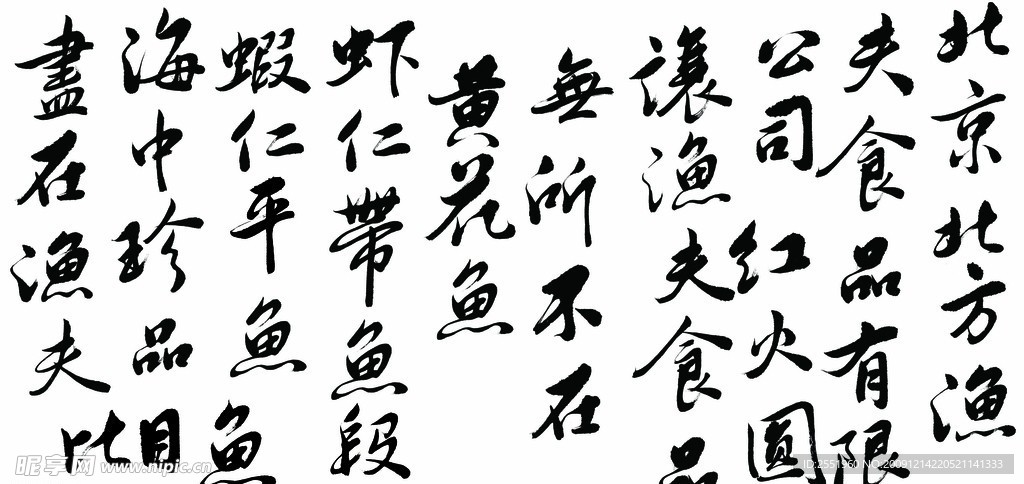 北京北方漁
夫食品有限
公司 红火圓
讓漁夫食品
無所不在
黄花魚
虾仁帶魚段
蝦仁平魚
海中珍品
盡在漁夫
比目魚
昵享网 www.nipic.cn
ID:2551960 NO:20091214220521141333